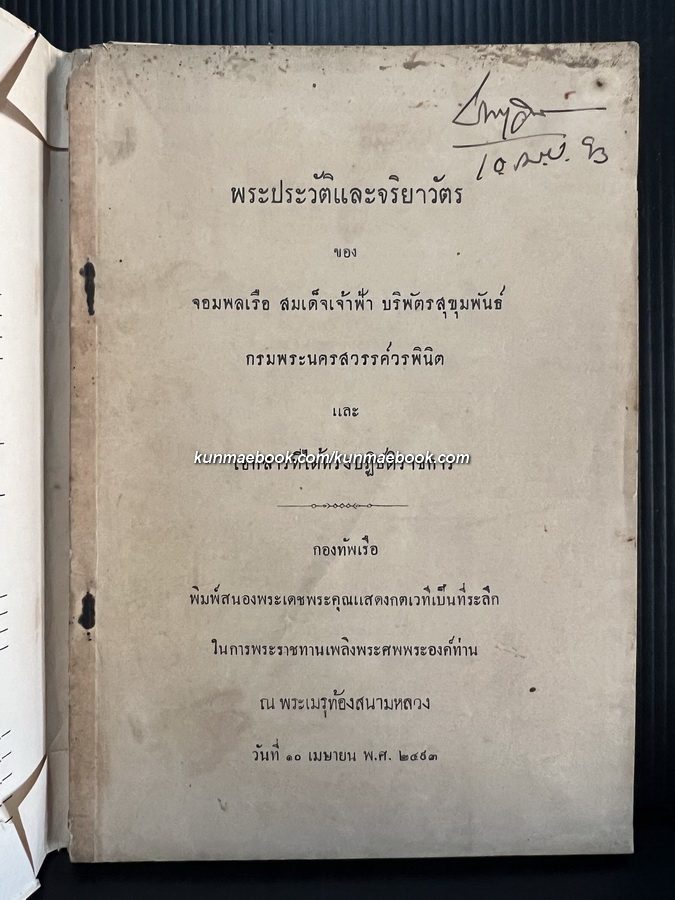 ๑๐ เม.ย. ๙๓
พระประวัติและจริยาวัตร
ของ
จอมพลเรือ สมเด็จเจ้าฟ้า บริพัตรสุขุมพันธุ์
กรมพระนครสวรรค์วรพินิต
และ
kunmaebook.com/kunmaebook.com
เอกสารที่ได้ทรงปฏิบัติราชการ
กองทัพเรือ
พิมพ์สนองพระเดชพระคุณแสดงกตเวทีเป็นที่ระลึก
ในการพระราชทานเพลิงพระศพพระองค์ท่าน
ณ พระเมรุท้องสนามหลวง
วันที่ ๑๐ เมษายน พ.ศ. ๒๔๙๓